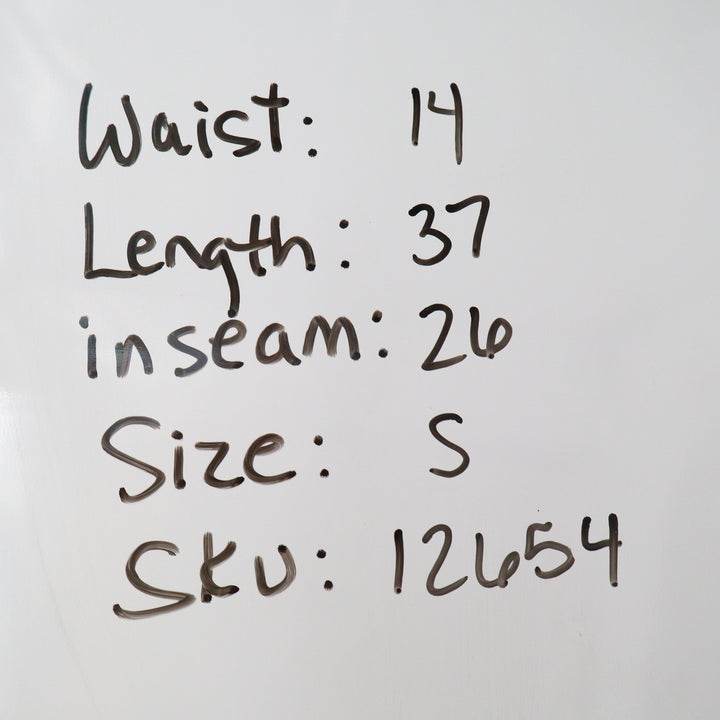 Waist: 14
Length: 37
inseam: 26
Size: S
Sku: 12654